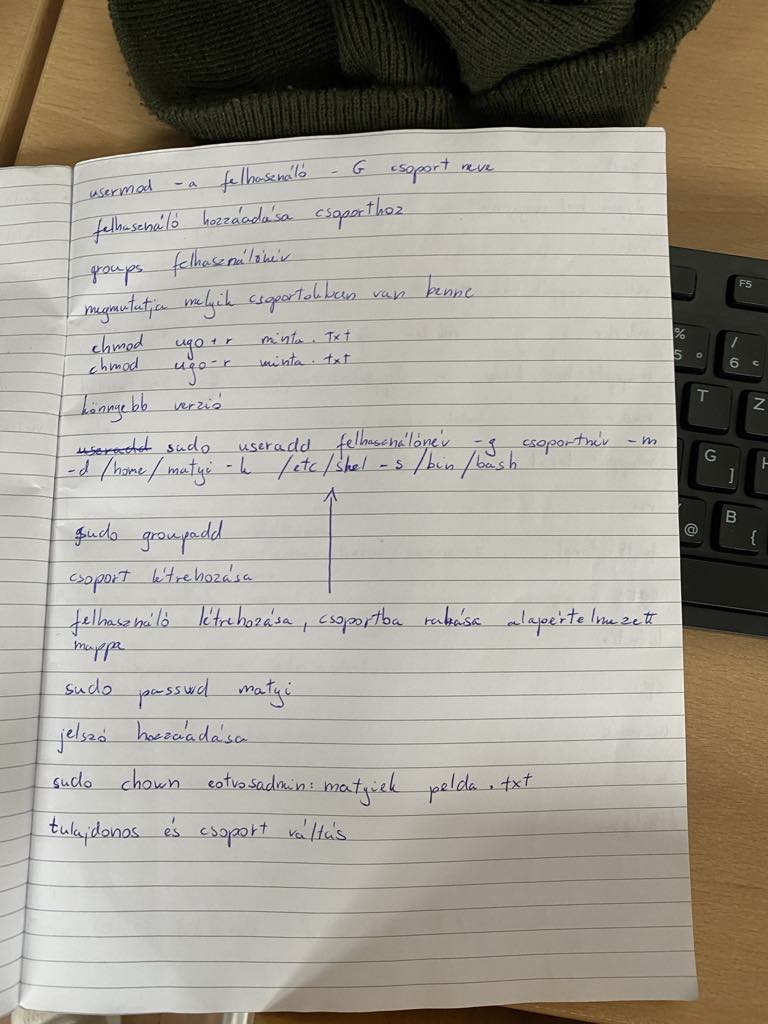 usermod -a felhasználó - G csoport neve
felhasználó hozzáadása csoporthoz
groups felhasználónév
megmutatja melyik csoportokban van benne
chmod ugo+r minta.txt
chmod ugo-r minta.txt
könnyebb verzió
useradd sudo useradd felhasználónév -g csoportnév -m
-d /home/matyi -k /etc/skel -s /bin/bash
sudo groupadd
csoport létrehozása
felhasználó létrehozása, csoportba rakása alapértelmezett
mappa
sudo passwd matyi
jelszó hozzáadása
sudo chown eotvosadmin:matyiek pelda.txt
tulajdonos és csoport váltás
F5
%
5
/
6
T
Z
G
]
@
B
{